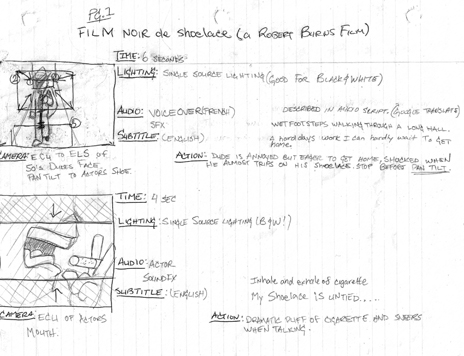 Pg.1
FILM NOIR de Shoelace (a Robert Burns Film)
TIME: 6 SECONDS
LIGHTING: SINGLE SOURCE LIGHTING (GOOD FOR BLACK & WHITE)
AUDIO: VOICE OVER (FRENCH) DESCRIBED IN AUDIO SCRIPT. (GOOGLE TRANSLATE)
SFX WET FOOTSTEPS WALKING THROUGH A LONG HALL.
SUBTITLE: (ENGLISH) A hard days work I can hardly wait to get home.
CAMERA: ECU TO ELS OF
50's DUDES FACE,
PAN TILT TO ACTORS SHOE.
ACTION: DUDE IS ANNOYED BUT EAGER TO GET HOME, SHOCKED WHEN
HE ALMOST TRIPS ON HIS SHOELACE. STOP BEFORE PAN TILT.
TIME: 4 SEC
LIGHTING: SINGLE SOURCE LIGHTING (B&W!)
AUDIO: ACTOR Inhale and exhale of cigarette
SOUND FX
SUBTITLE: (ENGLISH) My Shoelace IS UNTIED.....
CAMERA: ECU OF ACTORS
MOUTH.
ACTION: DRAMATIC PUFF OF CIGARETTE AND SNEERS
WHEN TALKING.